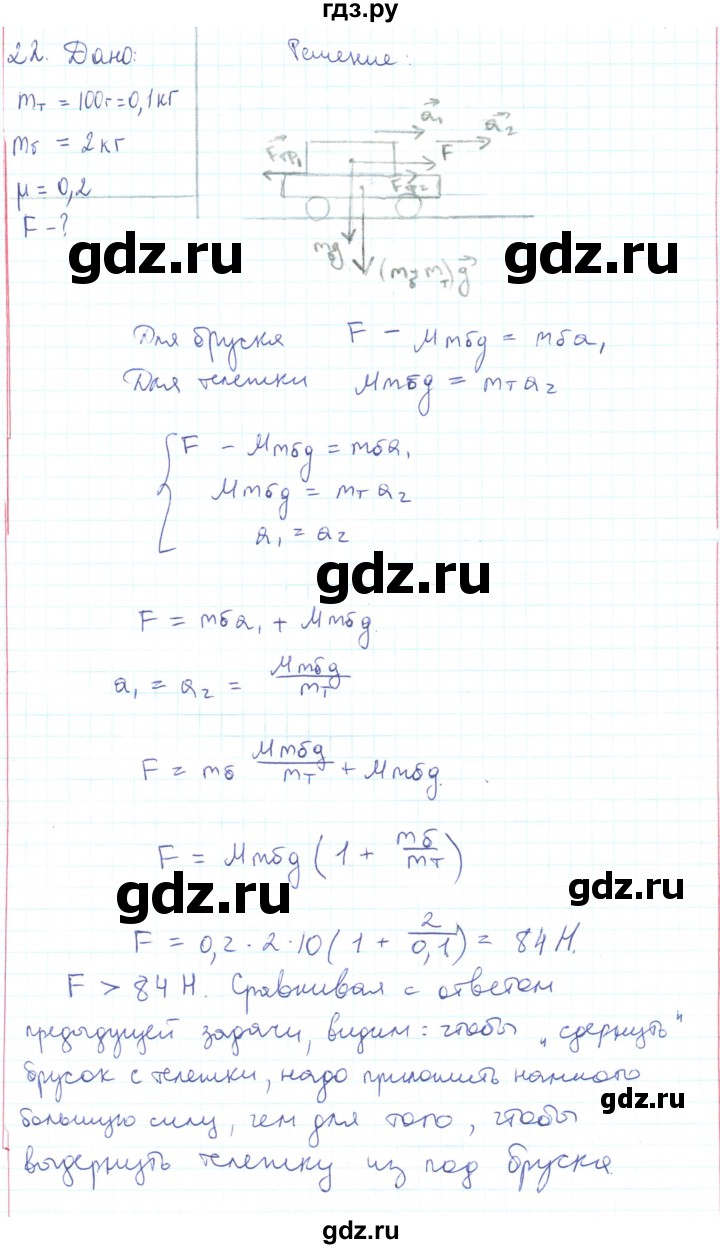 гдз.ру
22. Дано:
Решение:
mт = 100г = 0,1кг
mб = 2кг
μ = 0,2
F - ?
a₁
a₂
F
Fтр₁
Fтр₂
mбg
(mб + mт)g
gdz.ru
gdz.ru
Для бруска F - μmбg = mбa₁
Для тележки μmбg = mтa₂
F - μmбg = mбa₁
μmбg = mтa₂
a₁ = a₂
gdz.ru
F = mбa₁ + μmбg.
a₁ = a₂ = μmбg/mт
F = mб μmбg/mт + μmбg.
F = μmбg (1 + mб/mт)
gdz.ru
gdz.ru
F = 0,2 · 2 · 10 (1 + 2/0,1) = 84 Н.
F > 84 Н. Сравнивая с ответом
предыдущей задачи, видим: чтобы „сдернуть"
брусок с тележки, надо приложить намного
gdz.ru
большую силу, чем для того, чтобы
выдернуть тележку из под бруска.
gdz.ru